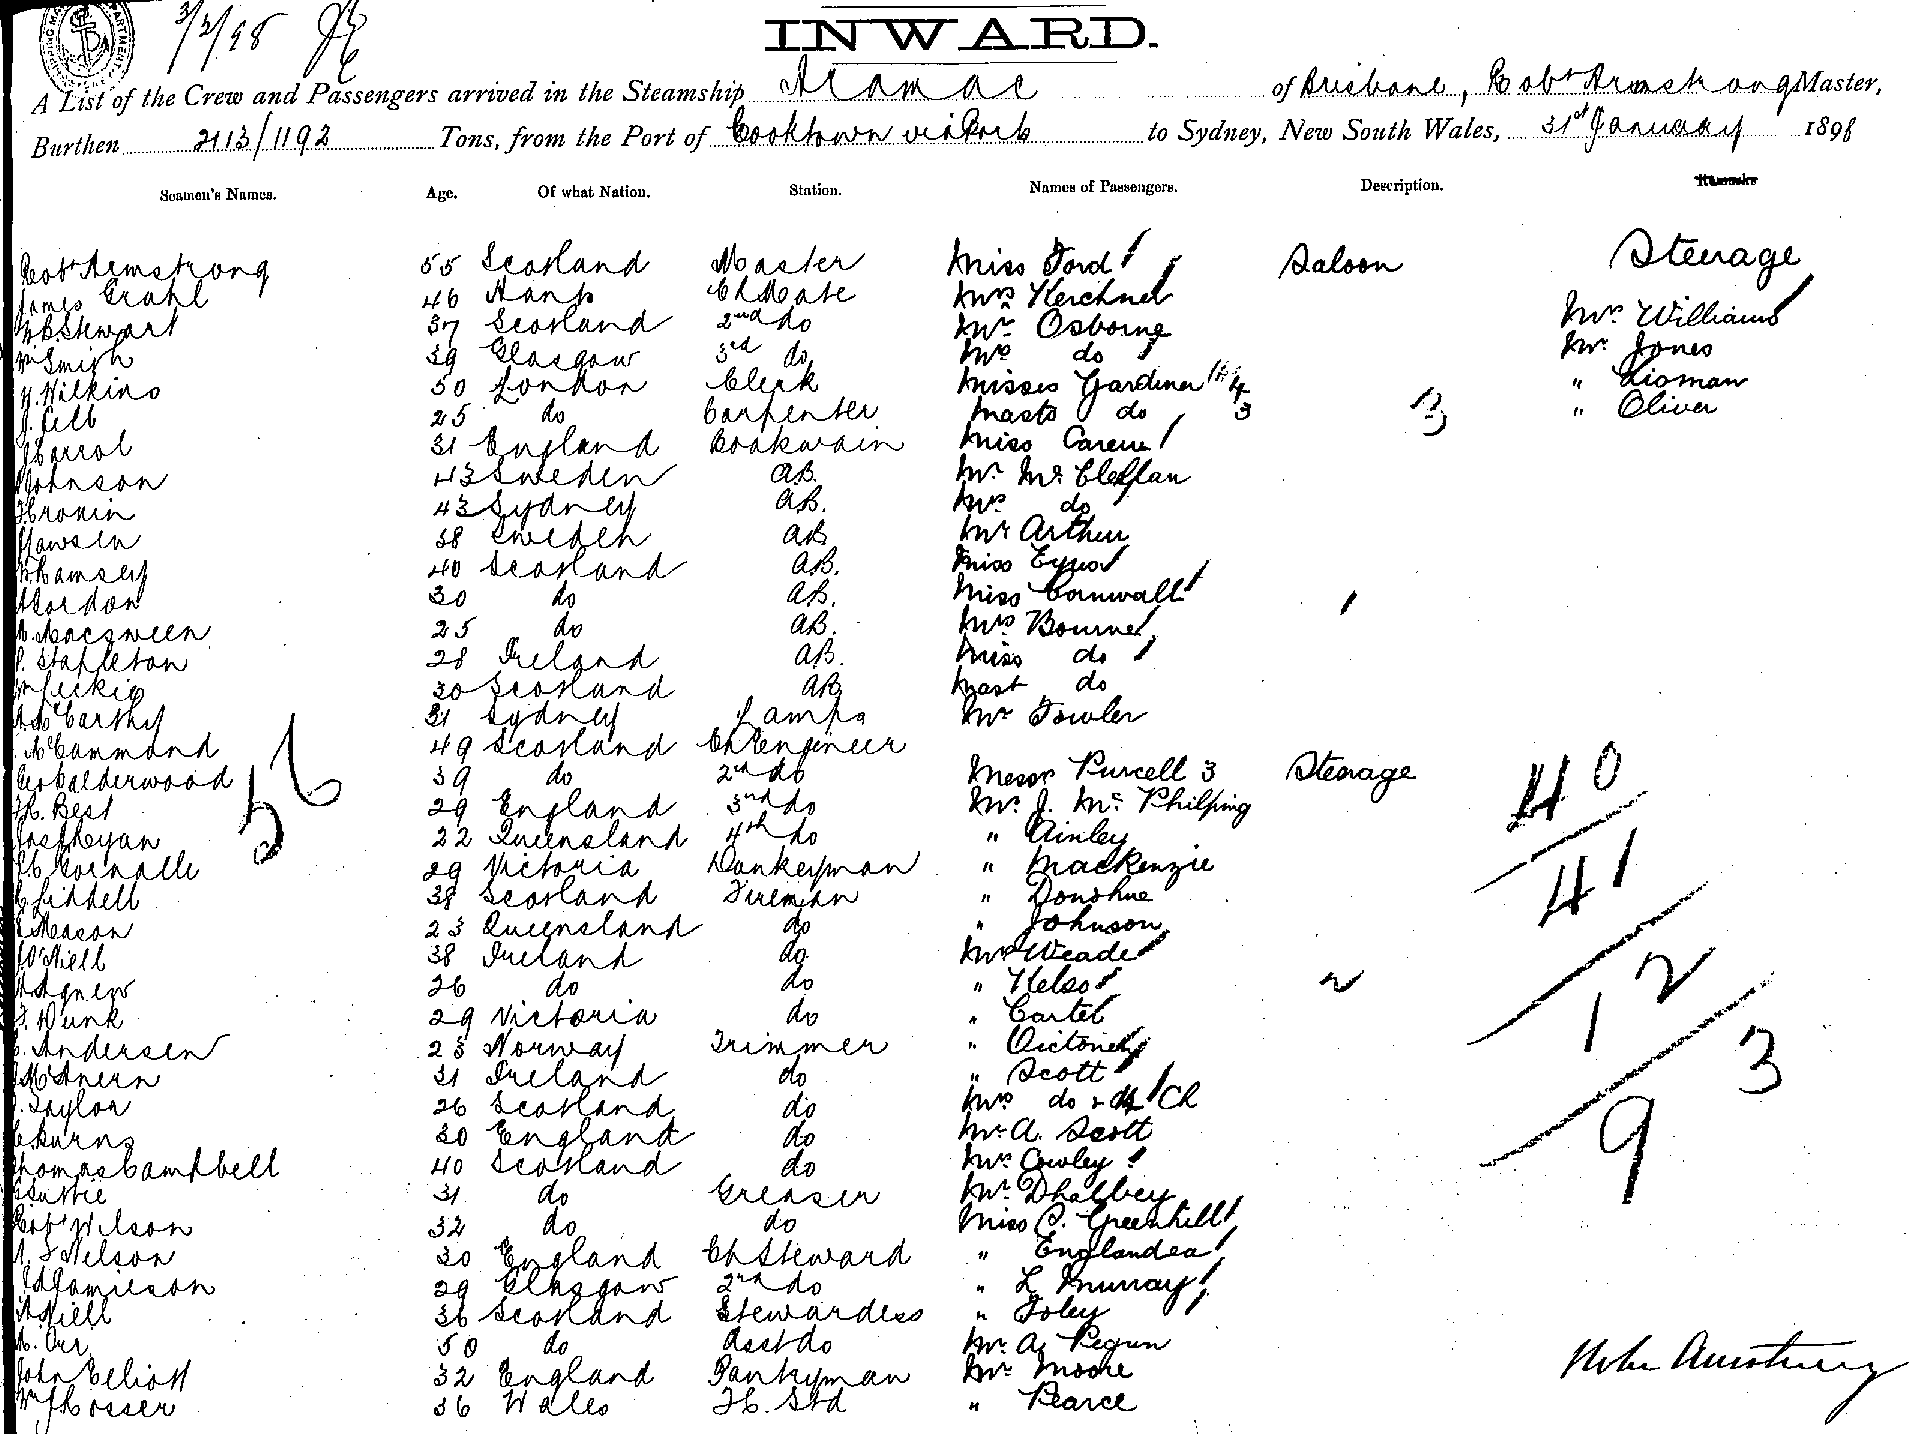 3/2/98
INWARD.
A List of the Crew and Passengers arrived in the Steamship Aramac of Brisbane, Robt Armstrong Master,
Burthen 2113/1192 Tons, from the Port of Cooktown via Ports to Sydney, New South Wales, 31st January 1898
Seamen's Names. Age. Of what Nation. Station. Names of Passengers. Description. Remarks
Robt Armstrong 55 Scotland Master Miss Ford Saloon Steerage
James Grahl 46 Hants Ch Mate Mrs Kerchner
Stewart 37 Scotland 2nd do Mr Osborne Mrs Williams
Wm Smith 39 Glasgow 3rd do Mrs do Mr Jones
Wilkins 50 London Clerk Misses Gardiner 4 "
25 do Carpenter Masts do 3 3 " Oliver
Carrol 31 England Cockswain Miss
Johnson 43 Sweden AB. Mr
Cronin 43 Sydney AB. Mrs do
38 Sweden AB Mr Arthur
Ramsey 40 Scotland AB. Miss
Gordon 30 do AB. Miss Cornwall
Macsween 25 do AB. Mrs Bourne
Stapleton 28 Ireland AB. Miss do
Wm Leckie 30 Scotland AB Mast do
McCarthy 31 Sydney Lamps Mr Fowler
McCammond 49 Scotland Ch Engineer
Geo Calderwood 39 do 2nd do Messr Purcell 3 Steerage 40
Best 29 England 3rd do Mr J. McPhilping
56
22 Queensland 4th do " Ainley 41
29 Victoria Donkeyman " Mackenzie
Liddell 38 Scotland Fireman " Donohue
Meason 23 Queensland do " Johnson
O'Niell 38 Ireland do Mrs Weade
Agnew 26 do do " Kelso 2 12
Dunk 29 Victoria do "
Andersen 23 Norway Trimmer " 3
McAnern 31 Ireland do " Scott
Taylor 26 Scotland do Mrs do + 4 Ch
Burns 30 England do Mr A. Scott 9
Thomas Campbell 40 Scotland do Mrs Cowley
31 do Greaser Mr Dhalbey
Robt Wilson 32 do do Miss C. Greenhill
Nelson 30 England Ch Steward "
Jamieson 29 Glasgow 2nd do " L Murray
Niell 36 Scotland Stewardess " Foley
Orr 50 do Asst do Mr A.
John Elliott 32 England Pantryman Mr Moore
Wm J Cosser 36 Wales Std " Pearce
Robt Armstrong